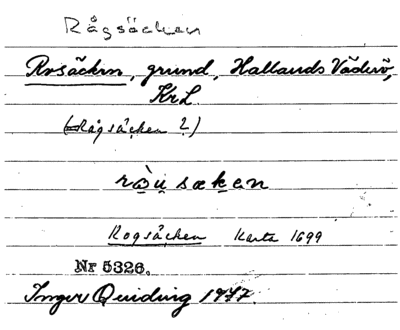 Rågsäcken
Rosäcken, grund, Hallands Väderö,
Kr L.
(Rågsäcken?)
ròu sæken
Rogsäcken Karta 1699
Nr 5326.
Inger Quiding 1977.